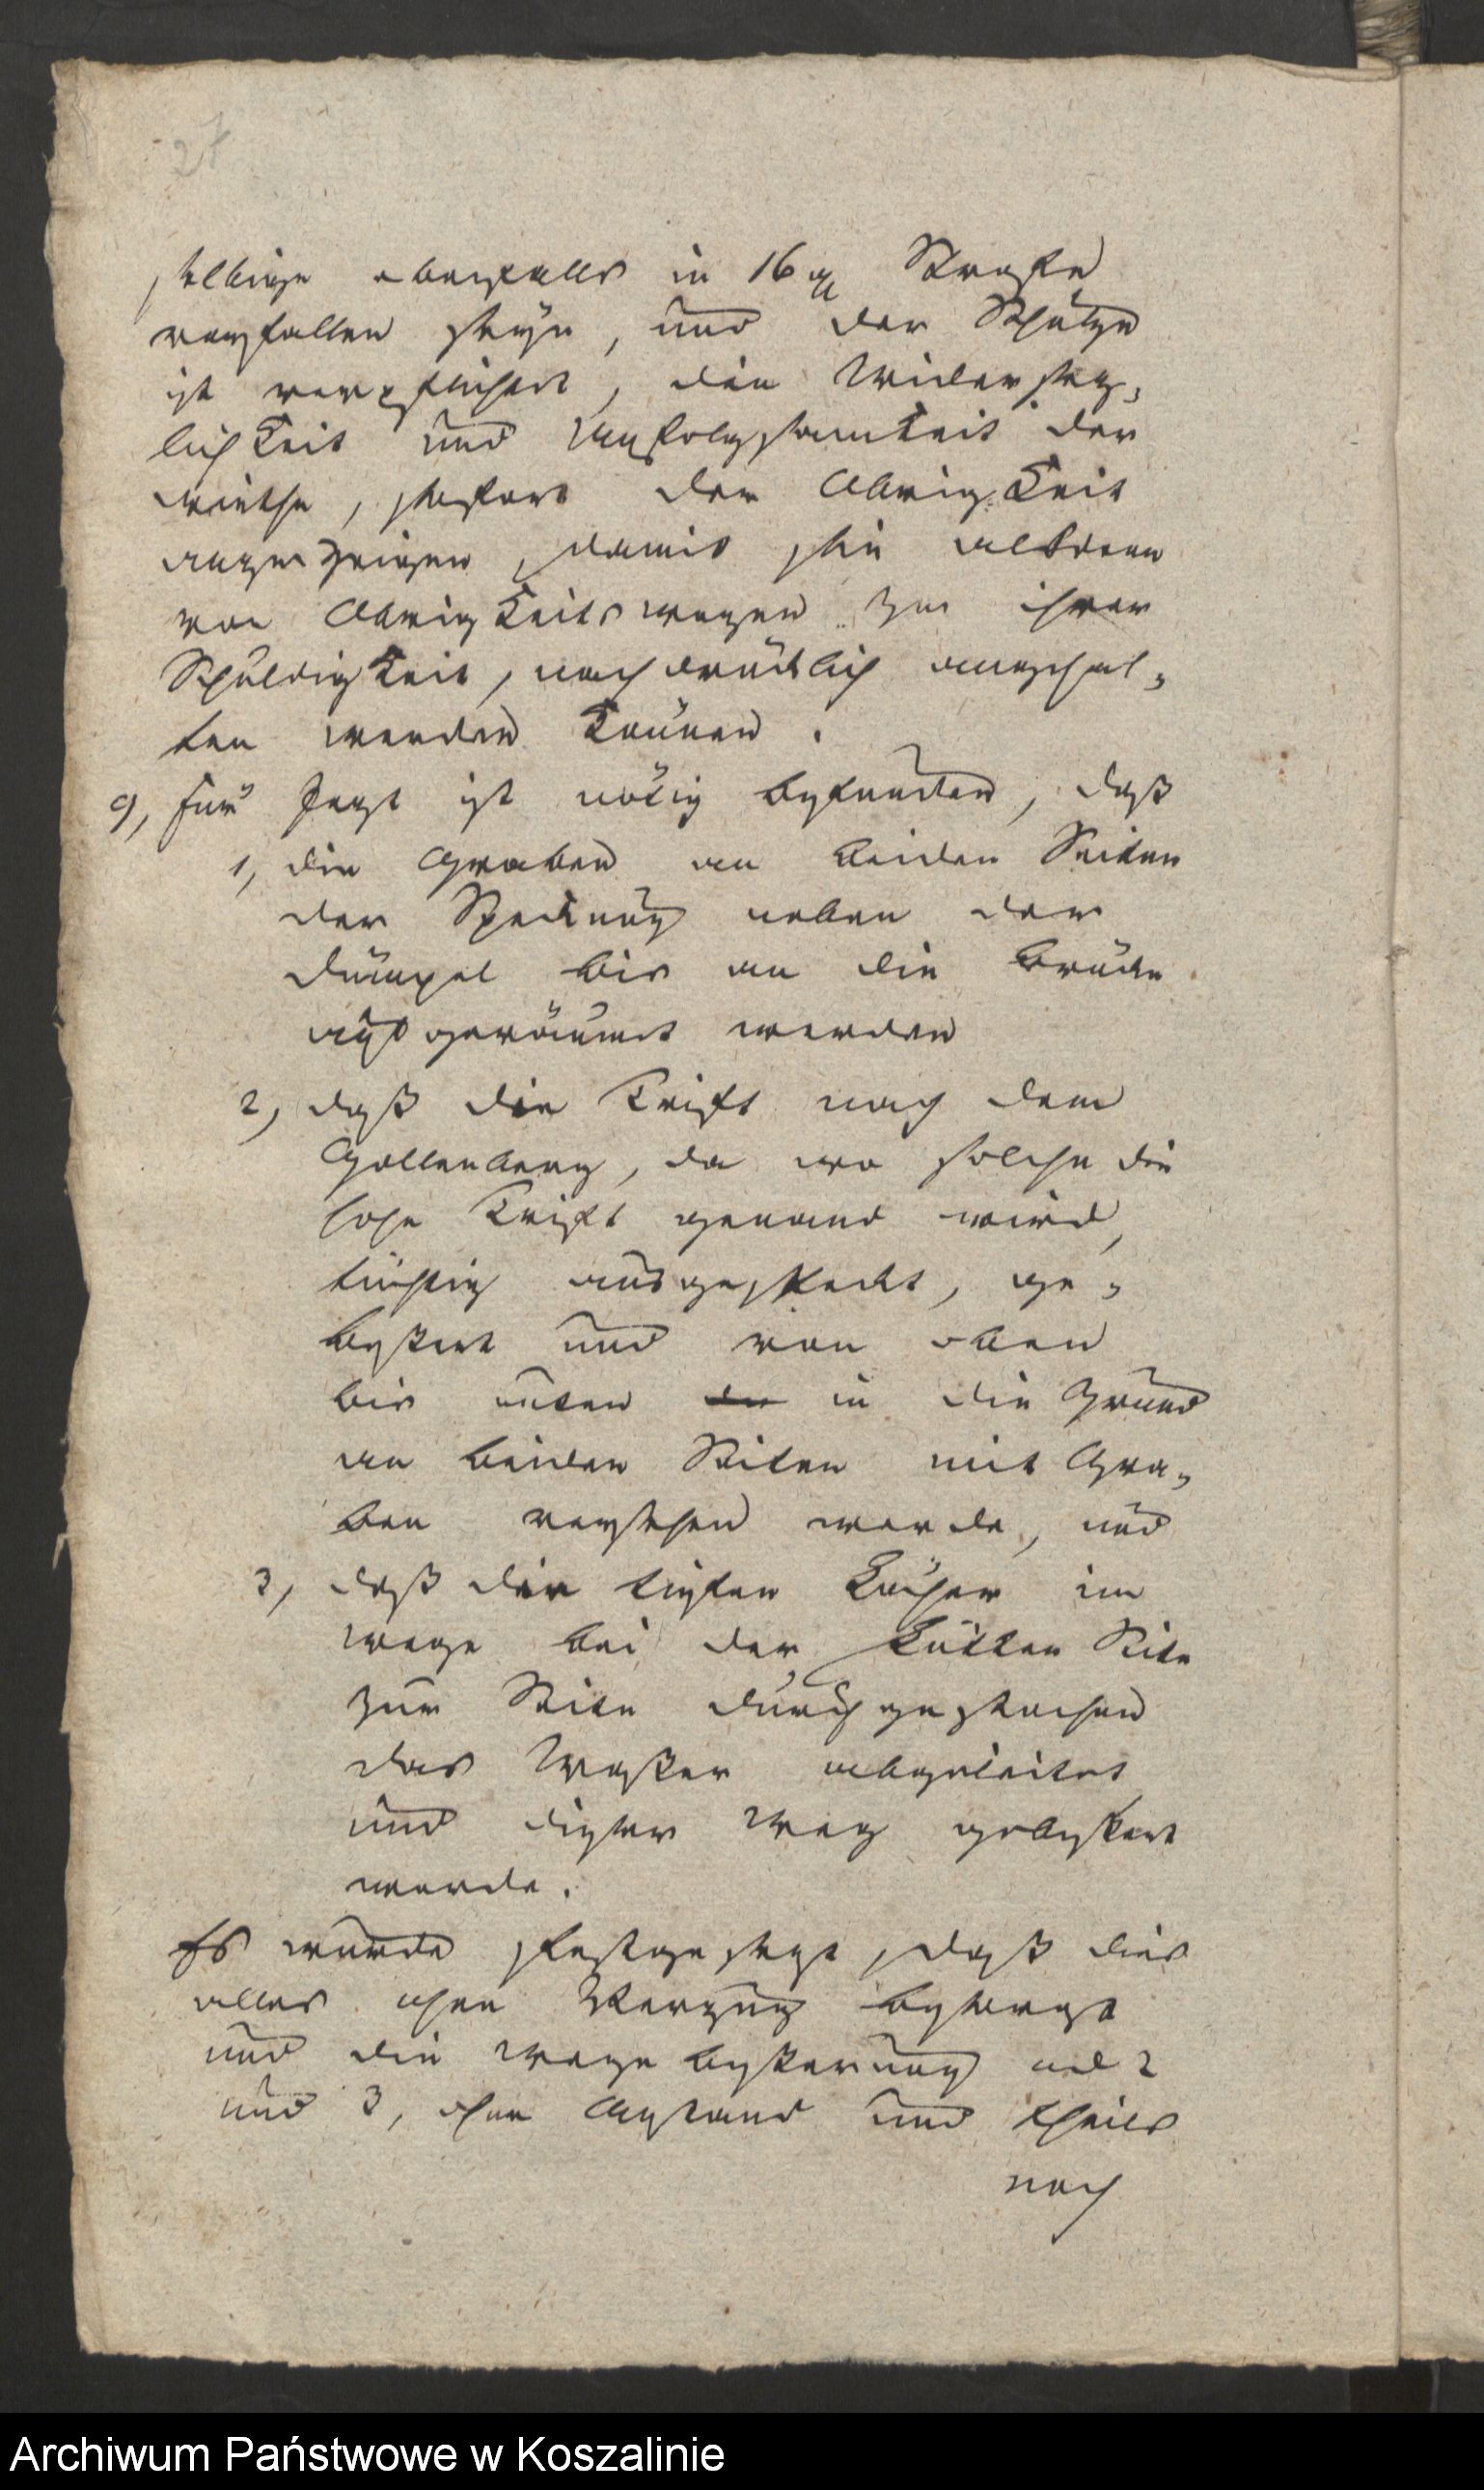 selbige ebenfalls in 16 gr Strafe
verfallen seyn, und der Schulze
ist verpflichtet, die Widersetz-
lichkeit und Unfolgsamkeit der
wirthe, sofort der Obrigkeit
anzuzeigen, damit sie alsdenn
von Obrigkeits wegen zu ihrer
Schuldigkeit, nachdrücklich angehal-
ten werden können.
9, für Jezt ist nötig befunden, daß
1, die Graben an beiden Seiten
der Speckung neben der
dümpel bis an die Brücke
aufgeräumt werden
2, daß die Trift nach dem
Gollenberg, da wo solche die
hohe Trift genand wird,
tüchtig ausgesteckt, ge-
beßert und von oben
bis unten in die Grund
an beiden Seiten mit Gra-
ben versehen werde, und
3, daß die tiefen Löcher im
wege bei der Seite
zur Seite durchgestochen
das Waßer abgeleitet
und dieser Weg gebeßert
werde.
Es wurde festgesezt, daß dies
alles ohne Verzug besorgt
und die Wege beßerung ad 2
und 3, ohne Anstand und theils
noch
Archiwum Państwowe w Koszalinie